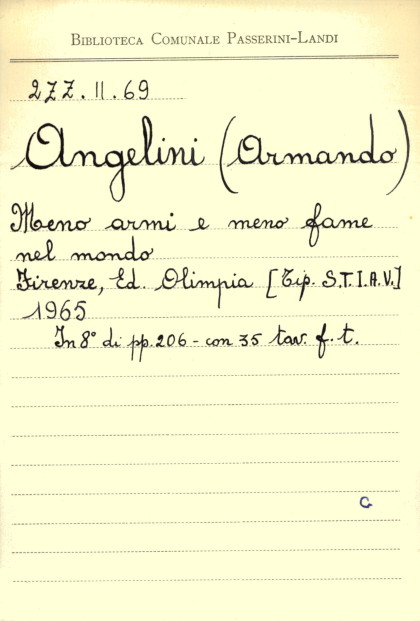 BIBLIOTECA COMUNALE PASSERINI-LANDI
2ZZ.11.69
Angelini (Armando)
Meno armi e meno fame
nel mondo
Firenze, Ed. Olimpia [Tip. S.T.I.A.V.]
1965
In 8° di pp. 206 - con 35 tav. f. t.
C